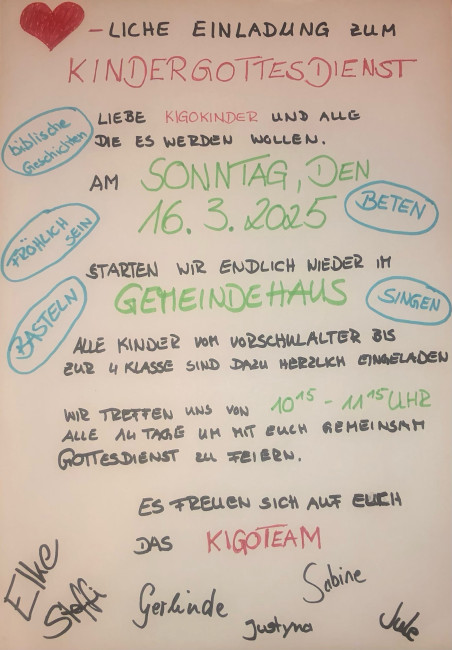 -LICHE EINLADUNG ZUM
KINDERGOTTESDIENST
LIEBE KIGOKINDER UND ALLE
DIE ES WERDEN WOLLEN.
biblische
Geschichten
AM SONNTAG, DEN
16.3.2025
BETEN
FRÖHLICH
SEIN
STARTEN WIR ENDLICH WIEDER IM
GEMEINDEHAUS
SINGEN
BASTELN
ALLE KINDER VOM VORSCHULALTER BIS
ZUR 4 KLASSE SIND DAZU HERZLICH EINGELADEN
WIR TREFFEN UNS VON 10¹⁵ - 11¹⁵ UHR
ALLE 14 TAGE UM MIT EUCH GEMEINSAM
GOTTESDIENST ZU FEIERN.
ES FREUEN SICH AUF EUCH
DAS KIGOTEAM
Elke
Steffi
Gerlinde
Sabine
Justyna
Jule